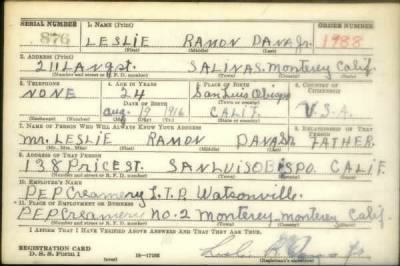 SERIAL NUMBER 1. NAME (Print) ORDER NUMBER
876 LESLIE RAMON DANA Jr. 1988
(First) (Middle) (Last)
2. ADDRESS (Print)
211 LANG ST. SALINAS. Monterey Calif.
(Number and street or R. F. D. number) (Town) (County) (State)
3. TELEPHONE 4. AGE IN YEARS 5. PLACE OF BIRTH 6. COUNTRY OF CITIZENSHIP
NONE 24 San Luis Obispo
DATE OF BIRTH (Town or county)
Aug. 19 1916 CALIF. U.S.A.
(Mo.) (Day) (Yr.) (State or country)
7. NAME OF PERSON WHO WILL ALWAYS KNOW YOUR ADDRESS 8. RELATIONSHIP OF THAT PERSON
Mr. LESLIE RAMON DANA Sr FATHER.
(Mr., Mrs., Miss) (First) (Middle) (Last)
9. ADDRESS OF THAT PERSON
138 PRICE ST. SAN LUIS OBISPO CALIF.
(Number and street or R. F. D. number) (Town) (County) (State)
10. EMPLOYER'S NAME
PEP Creamery LTD Watsonville.
11. PLACE OF EMPLOYMENT OR BUSINESS
PEP Creamery No. 2 Monterey Monterey Calif.
(Number and street or R. F. D. number) (Town) (County) (State)
I AFFIRM THAT I HAVE VERIFIED ABOVE ANSWERS AND THAT THEY ARE TRUE.
REGISTRATION CARD
D. S. S. Form 1 (over) (Registrant's signature)